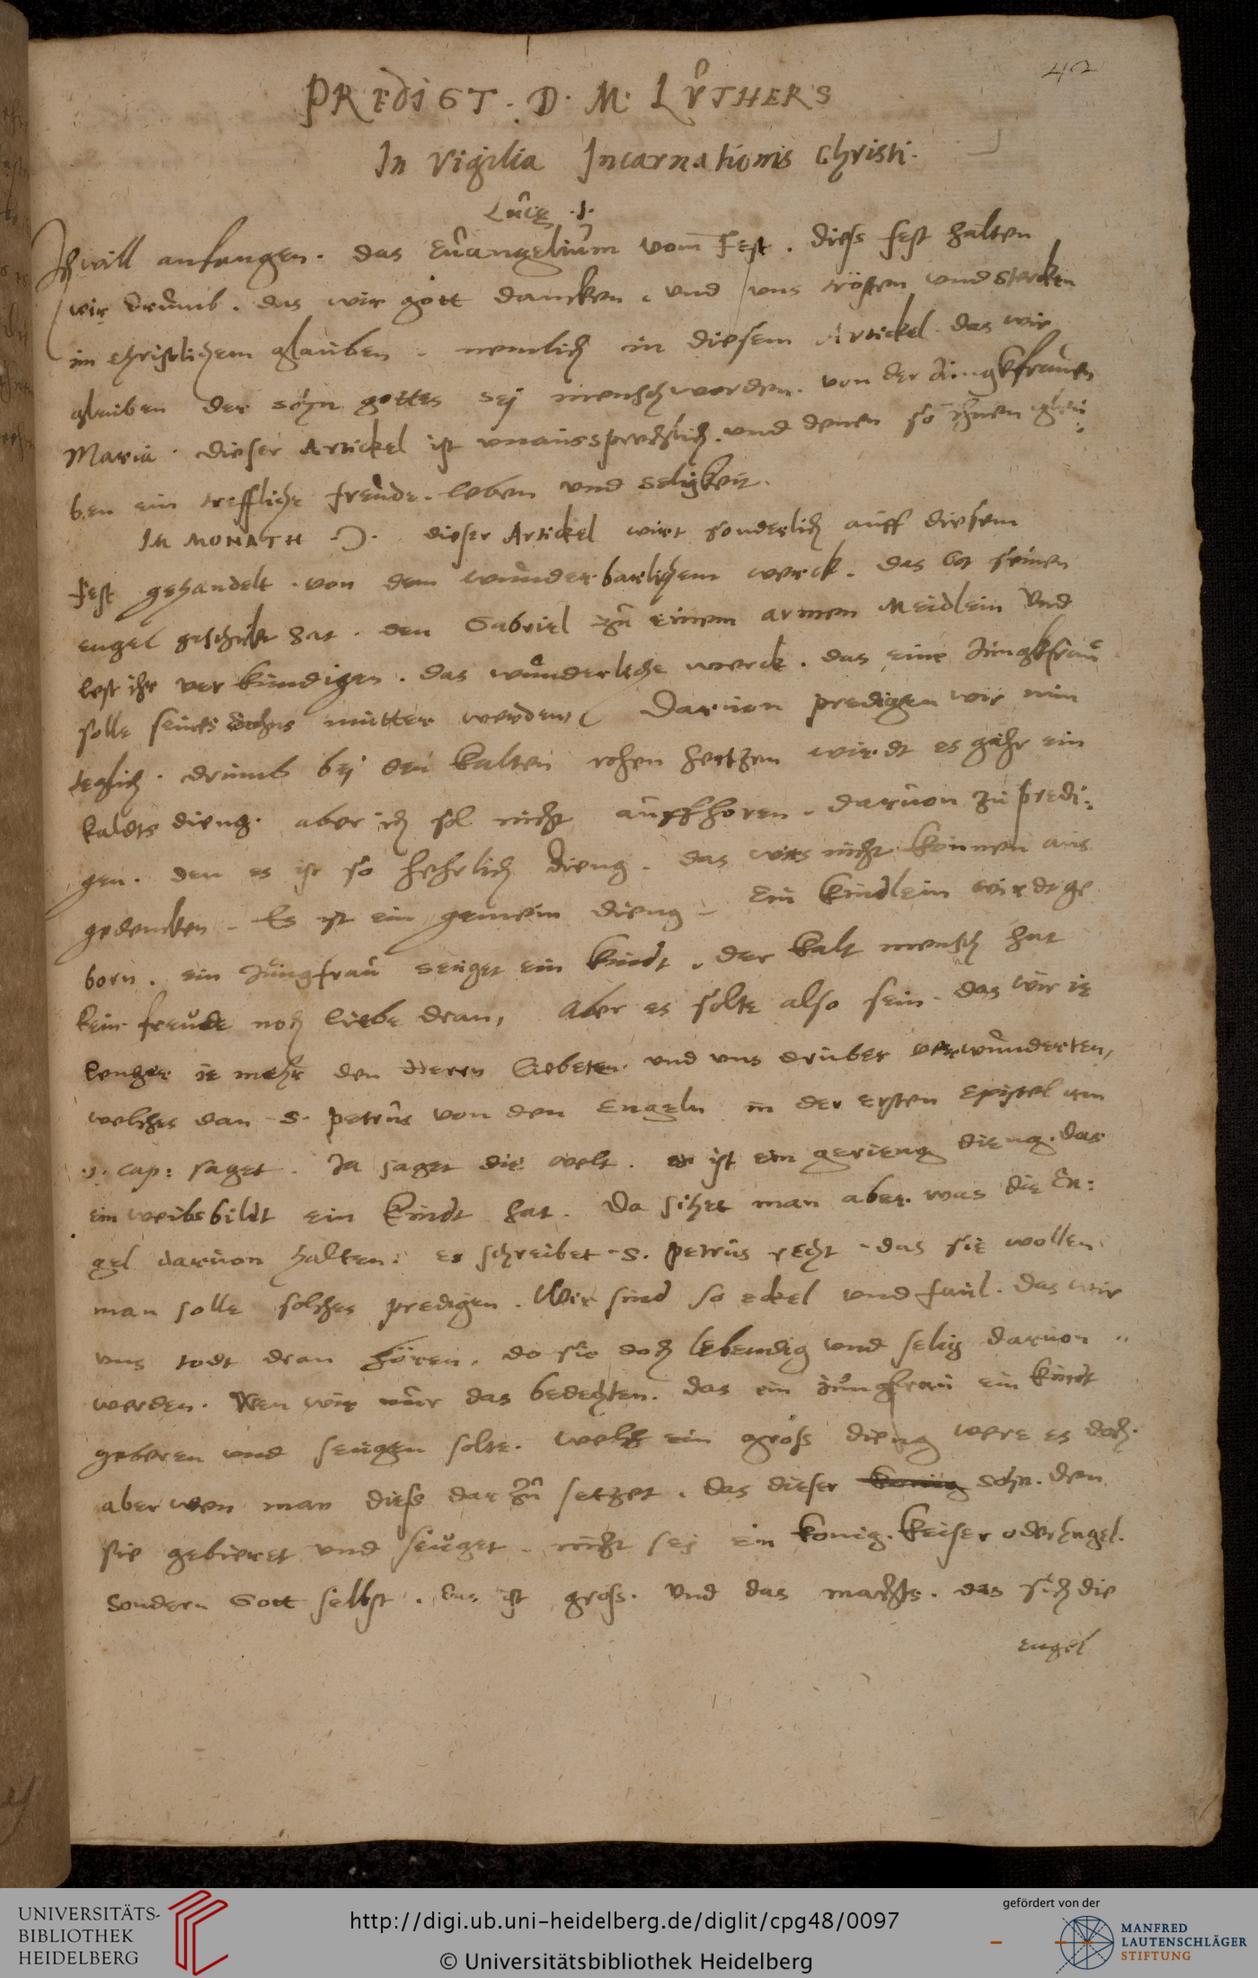 42
PREDIGT. D. M. LUTHERS
In Vigilia Incarnationis Christi.
Lucę .1.
Ich will anfangen. das Euangelium vom Fest. diess fest halten
wir drumb. das wir gott dancken. und uns trösten und stercken
im christlichem glauben. nemlich in diesem Artickel das wir
glauben der sohn gottes sej mensch worden. von der Jungkfrauen
Maria. dieser Artickel ist unaussprechlich. und denen so ihnen glau:
ben ein treffliche freude. leben und seligkeit.
IM MONATH dieser Artickel wirt sonderlich auff diesem
fest gehandelt. von dem wunderbarlichem werck. das Got seinen
engel geschickt hat. den Gabriel zu einem armen Meidlein und
lest ihr verkundigen. das wunderliche werck. das eine Jungkfrau
solle seines sohns mutter werden. Daruon predigen wir nun
teglich. drumb bej den kalten rohen hertzen wirdt es gahr ein
kaldts dieng. aber ich sol nicht auffhoren. daruon zu predi:
gen. den es ist so hehrlich dieng. das wirs nicht können aus
gedencken. Es ist ein gemein dieng. Ein kindlein wirdt ge
born. ein Jungfrau seuget ein kindt. der kalt mensch hat
kein freude noch liebe dran, Aber es solte also sein. das wir ie
lenger ie mehr den Herrn Lobeten. und uns druber verwunderten,
welches dan S. Petrus von den Engeln in der ersten Epistel am
.1. cap: saget. Ja saget die welt. es ist ein gerieng dieng. das
ein weibsbildt ein kindt hat. Da sihet man aber. was die En:
gel daruon halten: es schreibet S. Petrus recht. das sie wollen
man solle solches predigen. Wir sind so eckel und faul. das wir
uns todt dran hören. do sie doch lebendig und selig daruon
werden. Wen wir nur das bedechten. das ein jungfrau ein kindt
geberen und seugen solte. welch ein gross dieng were es doch.
aber wen man diess darzu setzet. das dieser konig sohn. den
sie gebieret und seuget. nicht sej ein konig. keiser oder engel.
sondern Gott selbst. das ist gross. und das machts. das sich die
engel
UNIVERSITÄTS-
BIBLIOTHEK
HEIDELBERG
http://digi.ub.uni-heidelberg.de/diglit/cpg48/0097
© Universitätsbibliothek Heidelberg
gefördert von der
MANFRED
LAUTENSCHLÄGER
STIFTUNG